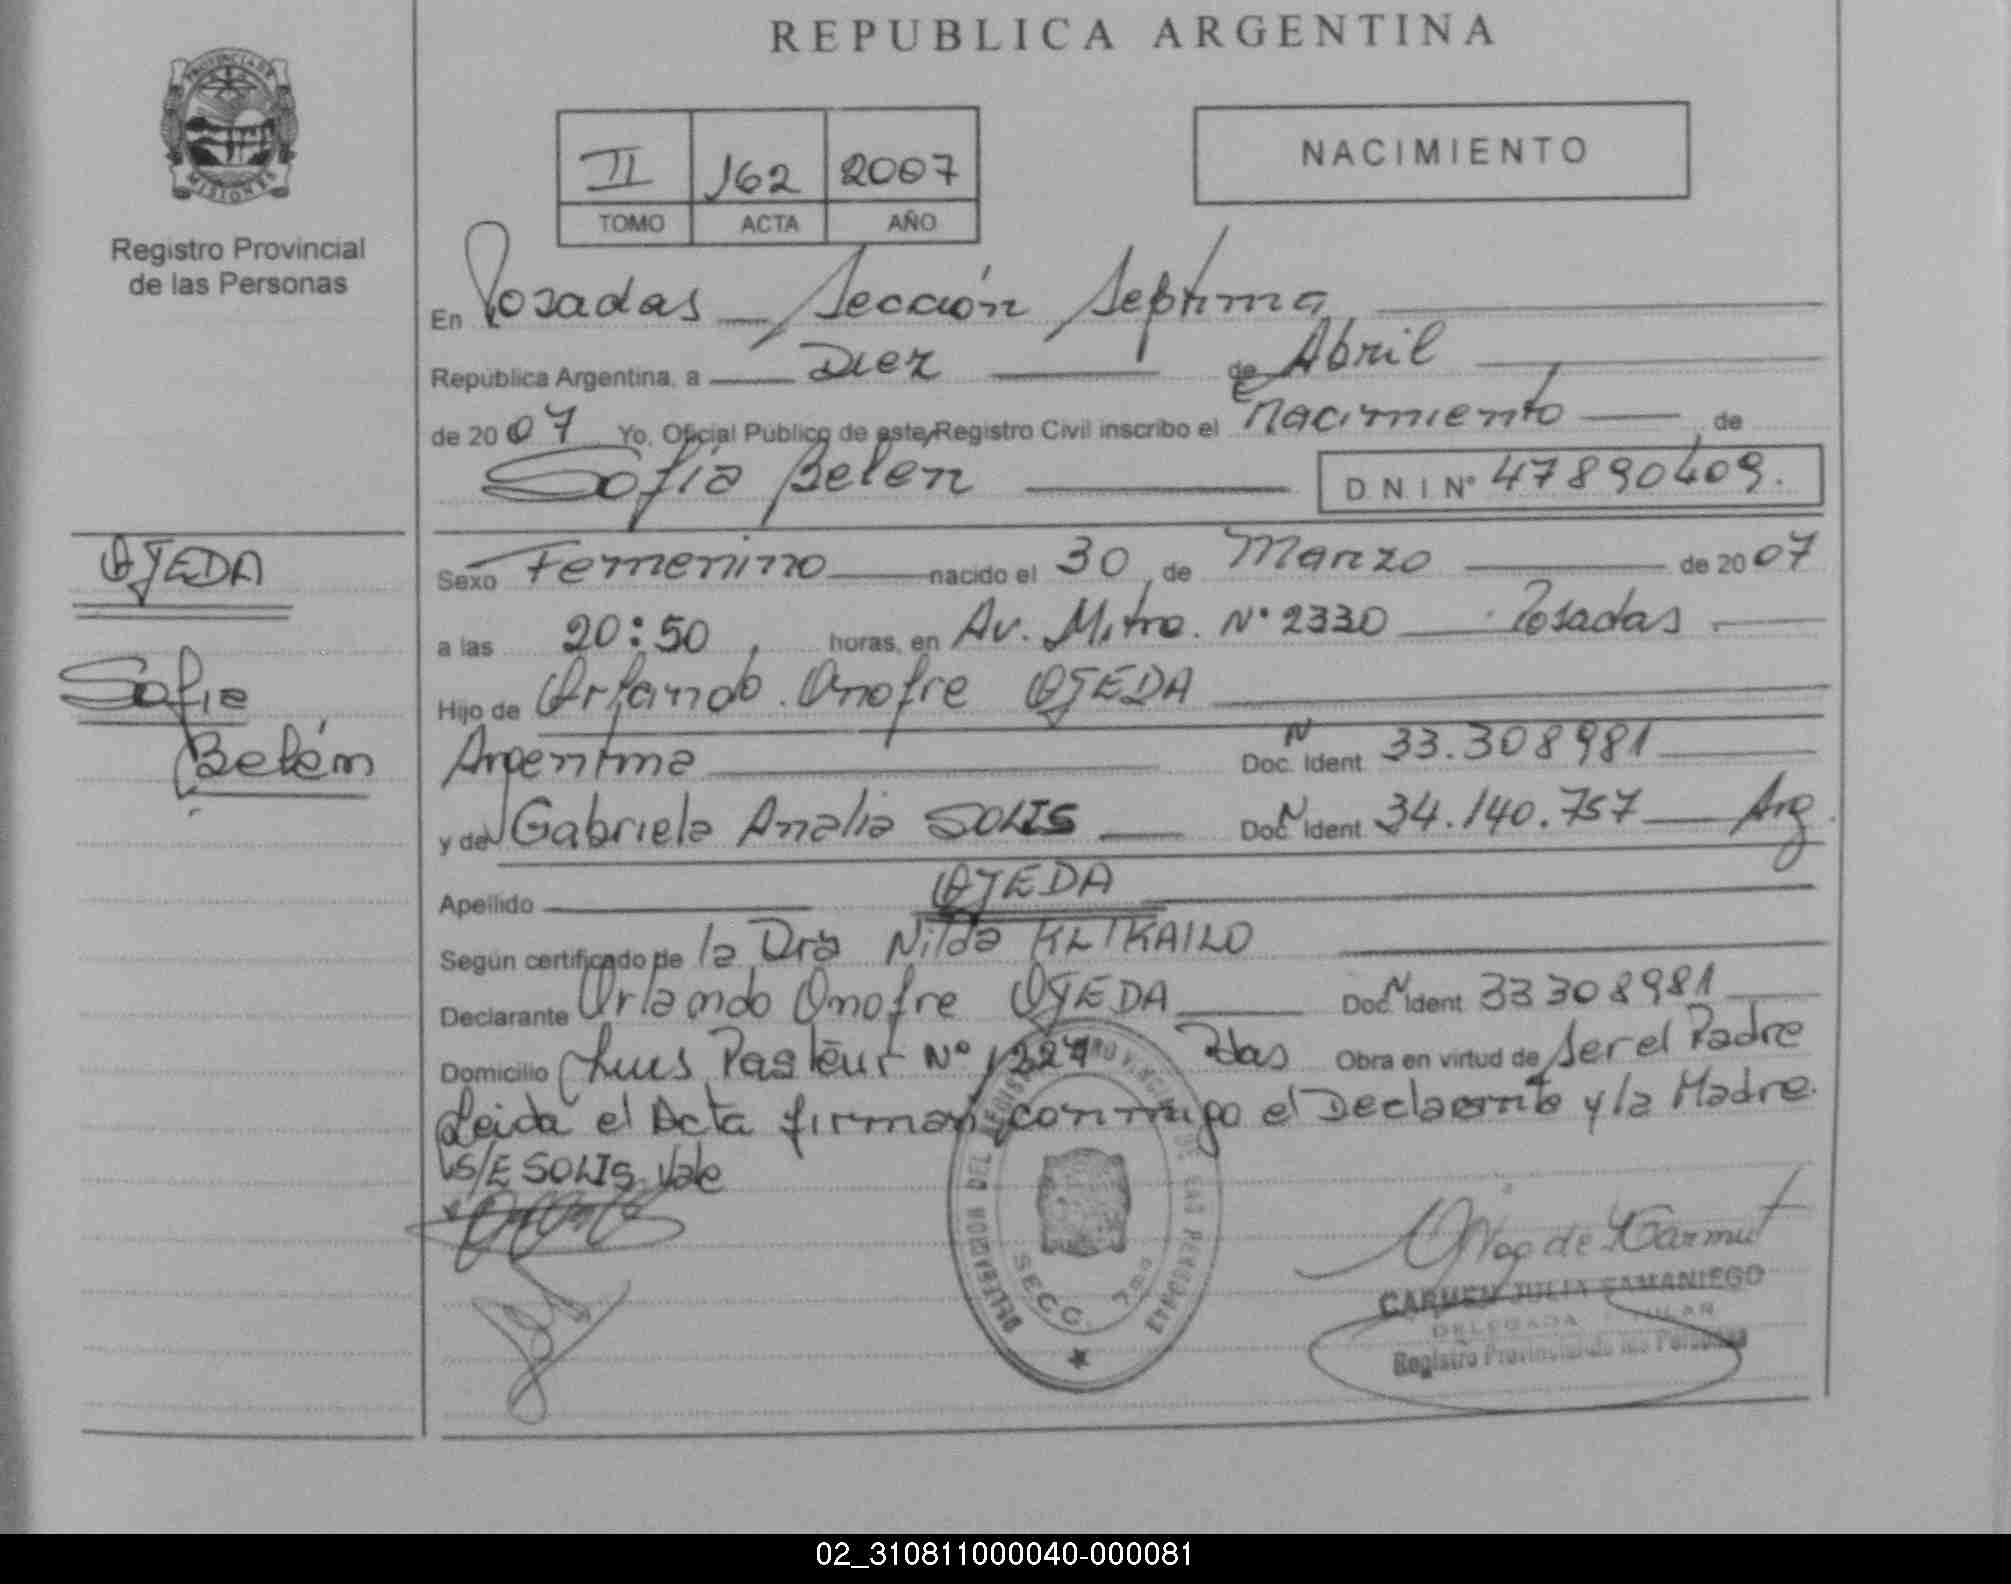 REPUBLICA ARGENTINA
PROVINCIA DE
MISIONES
Registro Provincial
de las Personas
II 162 2007
TOMO ACTA AÑO
NACIMIENTO
En Posadas Sección Septima
República Argentina, a Diez de Abril
de 2007 Yo, Oficial Público de este Registro Civil inscribo el Nacimiento de
Sofia Belén D N I Nº 47890409.
OJEDA
Sofia
Belén
Sexo Femenino nacido el 30 de Marzo de 2007
a las 20:50 horas, en Av. Mitre. Nº 2330 Posadas
Hijo de Orlando Onofre OJEDA
Argentina Doc. N Ident 33.308981
y de Gabriela Analia SOLIS Doc. N Ident 34.140.757 Arg
Apellido OJEDA
Según certificado de la Dra Nilda KLIKAILO
Declarante Orlando Onofre OJEDA Doc. N Ident 33308981
Domicilio Luis Pasteur Nº 1227 Pdas Obra en virtud de Ser el Padre
Leida el Acta firman conmigo el Declarante y la Madre.
S/E SOLIS. Vale
SECC. 7ma
CARMEN JULIA SAMANIEGO
DELEGADA TITULAR
Registro Provincial de las Personas
02_310811000040-000081